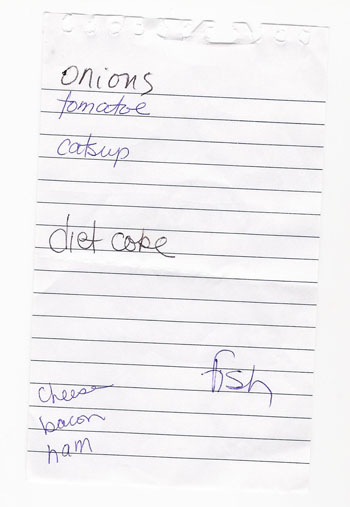 onions
tomatoe
catsup
diet coke
fish
cheese
bacon
ham